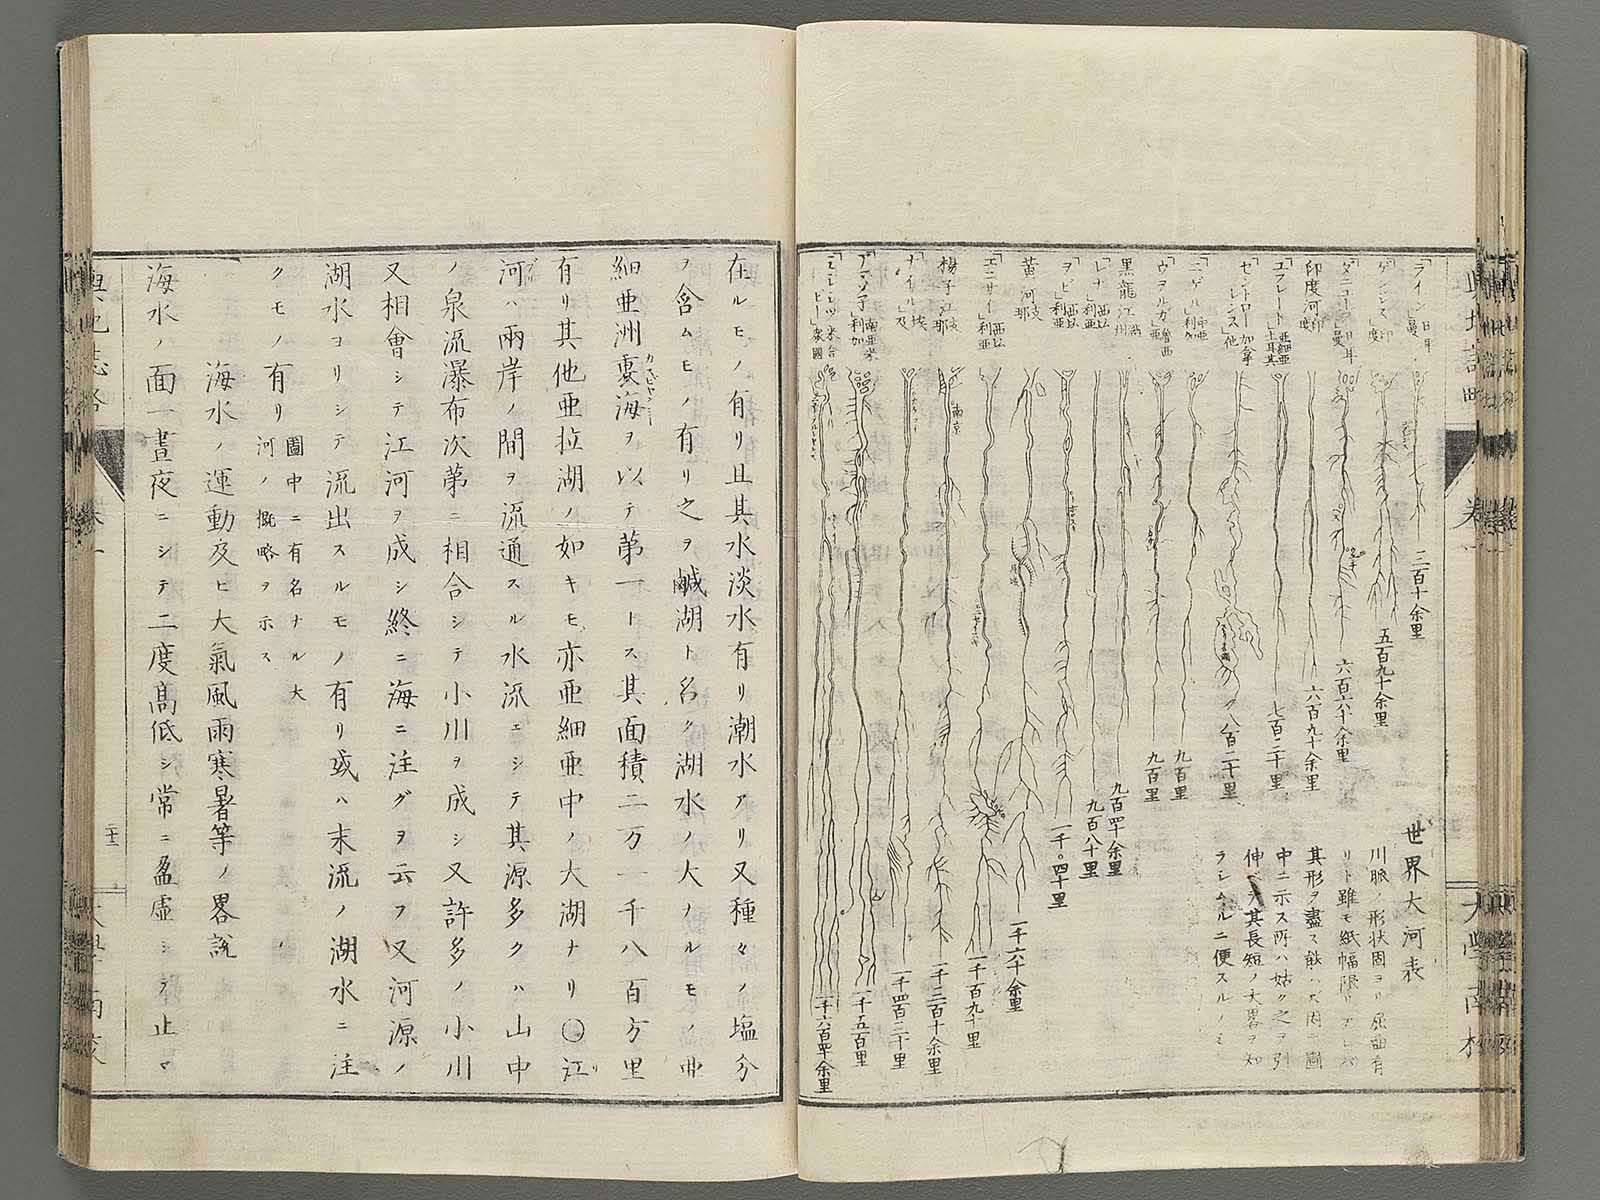 「ライン」日耳曼
三百十余里
「ゲンジス」印度
五百九十余里
「ダニューブ」日耳曼
六百六十余里
印度河 印度
六百九十余里
「エフレート」亜細亜土耳其
七百二十里
「セントローレンス」加拿他
八百二十里
「ニゲル」中亜利加
九百里
「ウヲルガ」魯西亜
九百里
黒龍江 満州
九百四十余里
「レナ」西以利亜
九百八十里
「ヲビ」西以利亜
一千〇四十里
黄河 支那
一千六十余里
「エニサイ」西以利亜
一千百九十里
楊子江 支那
南京
一千三百十余里
「ナイル」埃及
一千四百二十里
「アマソ子」南亜米利加
一千五百里
「ミシシッピー」米合衆國
一千六百四十余里
世界大河表
川脈ノ形状固ヨリ屈曲有
リト雖モ紙幅限リアレバ
其形ヲ盡ス能ハズ因テ圖
中ニ示ス所ハ姑ク之ヲ引
伸ベテ其長短ノ大畧ヲ知
ラシムルニ便スルノミ
輿地誌略
卷一
大學南校
在ルモノ有リ且其水淡水有リ潮水アリ又種々ノ塩分
ヲ含ムモノ有リ之ヲ鹹湖ト名ク湖水ノ大ナルモノハ亜
細亜洲裏海ヲ以テ第一トス其面積二万一千八百方里
カスピヤンシー
有リ其他亜拉湖ノ如キモ亦亜細亜中ノ大湖ナリ〇江
河ハ兩岸ノ間ヲ流通スル水流ニシテ其源多クハ山中
ノ泉流瀑布次第ニ相合シテ小川ヲ成シ又許多ノ小川
又相會シテ江河ヲ成シ終ニ海ニ注グヲ云フ又河源ノ
湖水ヨリシテ流出スルモノ有リ或ハ末流ノ湖水ニ注
クモノ有リ圖中ニ有名ナル大河ノ概略ヲ示ス
海水ノ運動及ヒ大氣風雨寒暑等ノ畧説
海水ノ面一晝夜ニシテ二度高低シ常ニ盈虚シテ止マ
輿地誌略
卷一
二十二
大學南校